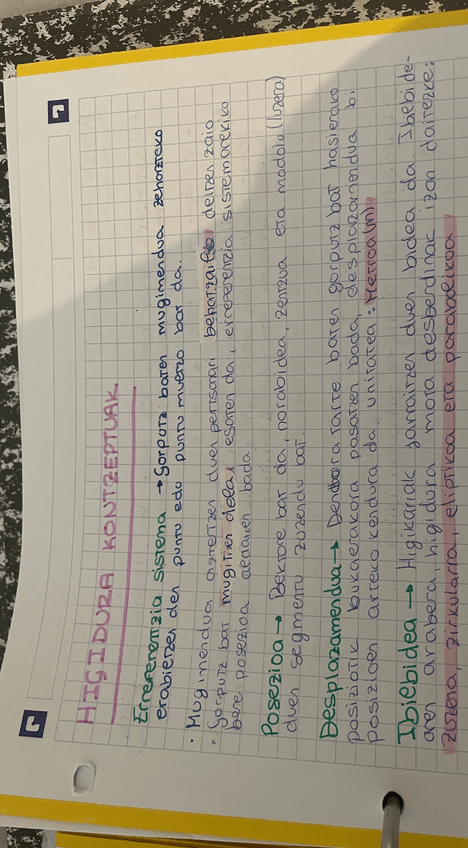 HIGIDURA KONTZEPTUAK
Erreferentzia sistema → Gorputz baten mugimendua zehazteko
erabiltzen den puntu edo puntu multzo bat da.
· Mugimendua aztertzen duen pertsonari behatzailea deitzen zaio
· Gorputz bat mugitzen dela esaten da, erreferentzia sistemarekiko
bere posizioa aldatzen bada
Posizioa → Bektore bat da, norabidea, zentzua eta modulu (luzera)
duen segmentu zuzendu bat.
Desplazamendua → Denbora tarte baten gorputz bat hasierako
posiziotik bukaerakora pasatzen bada, desplazamendua bi
posizioen arteko kendura da unitatea: Metroa (m)
Ibilbidea → Higikariak jarraitzen duen bidea da Ibilbide-
aren arabera higidura mota desberdinak izan daitezke:
zuzena, zirkularra, eliptikoa eta parabolikoa